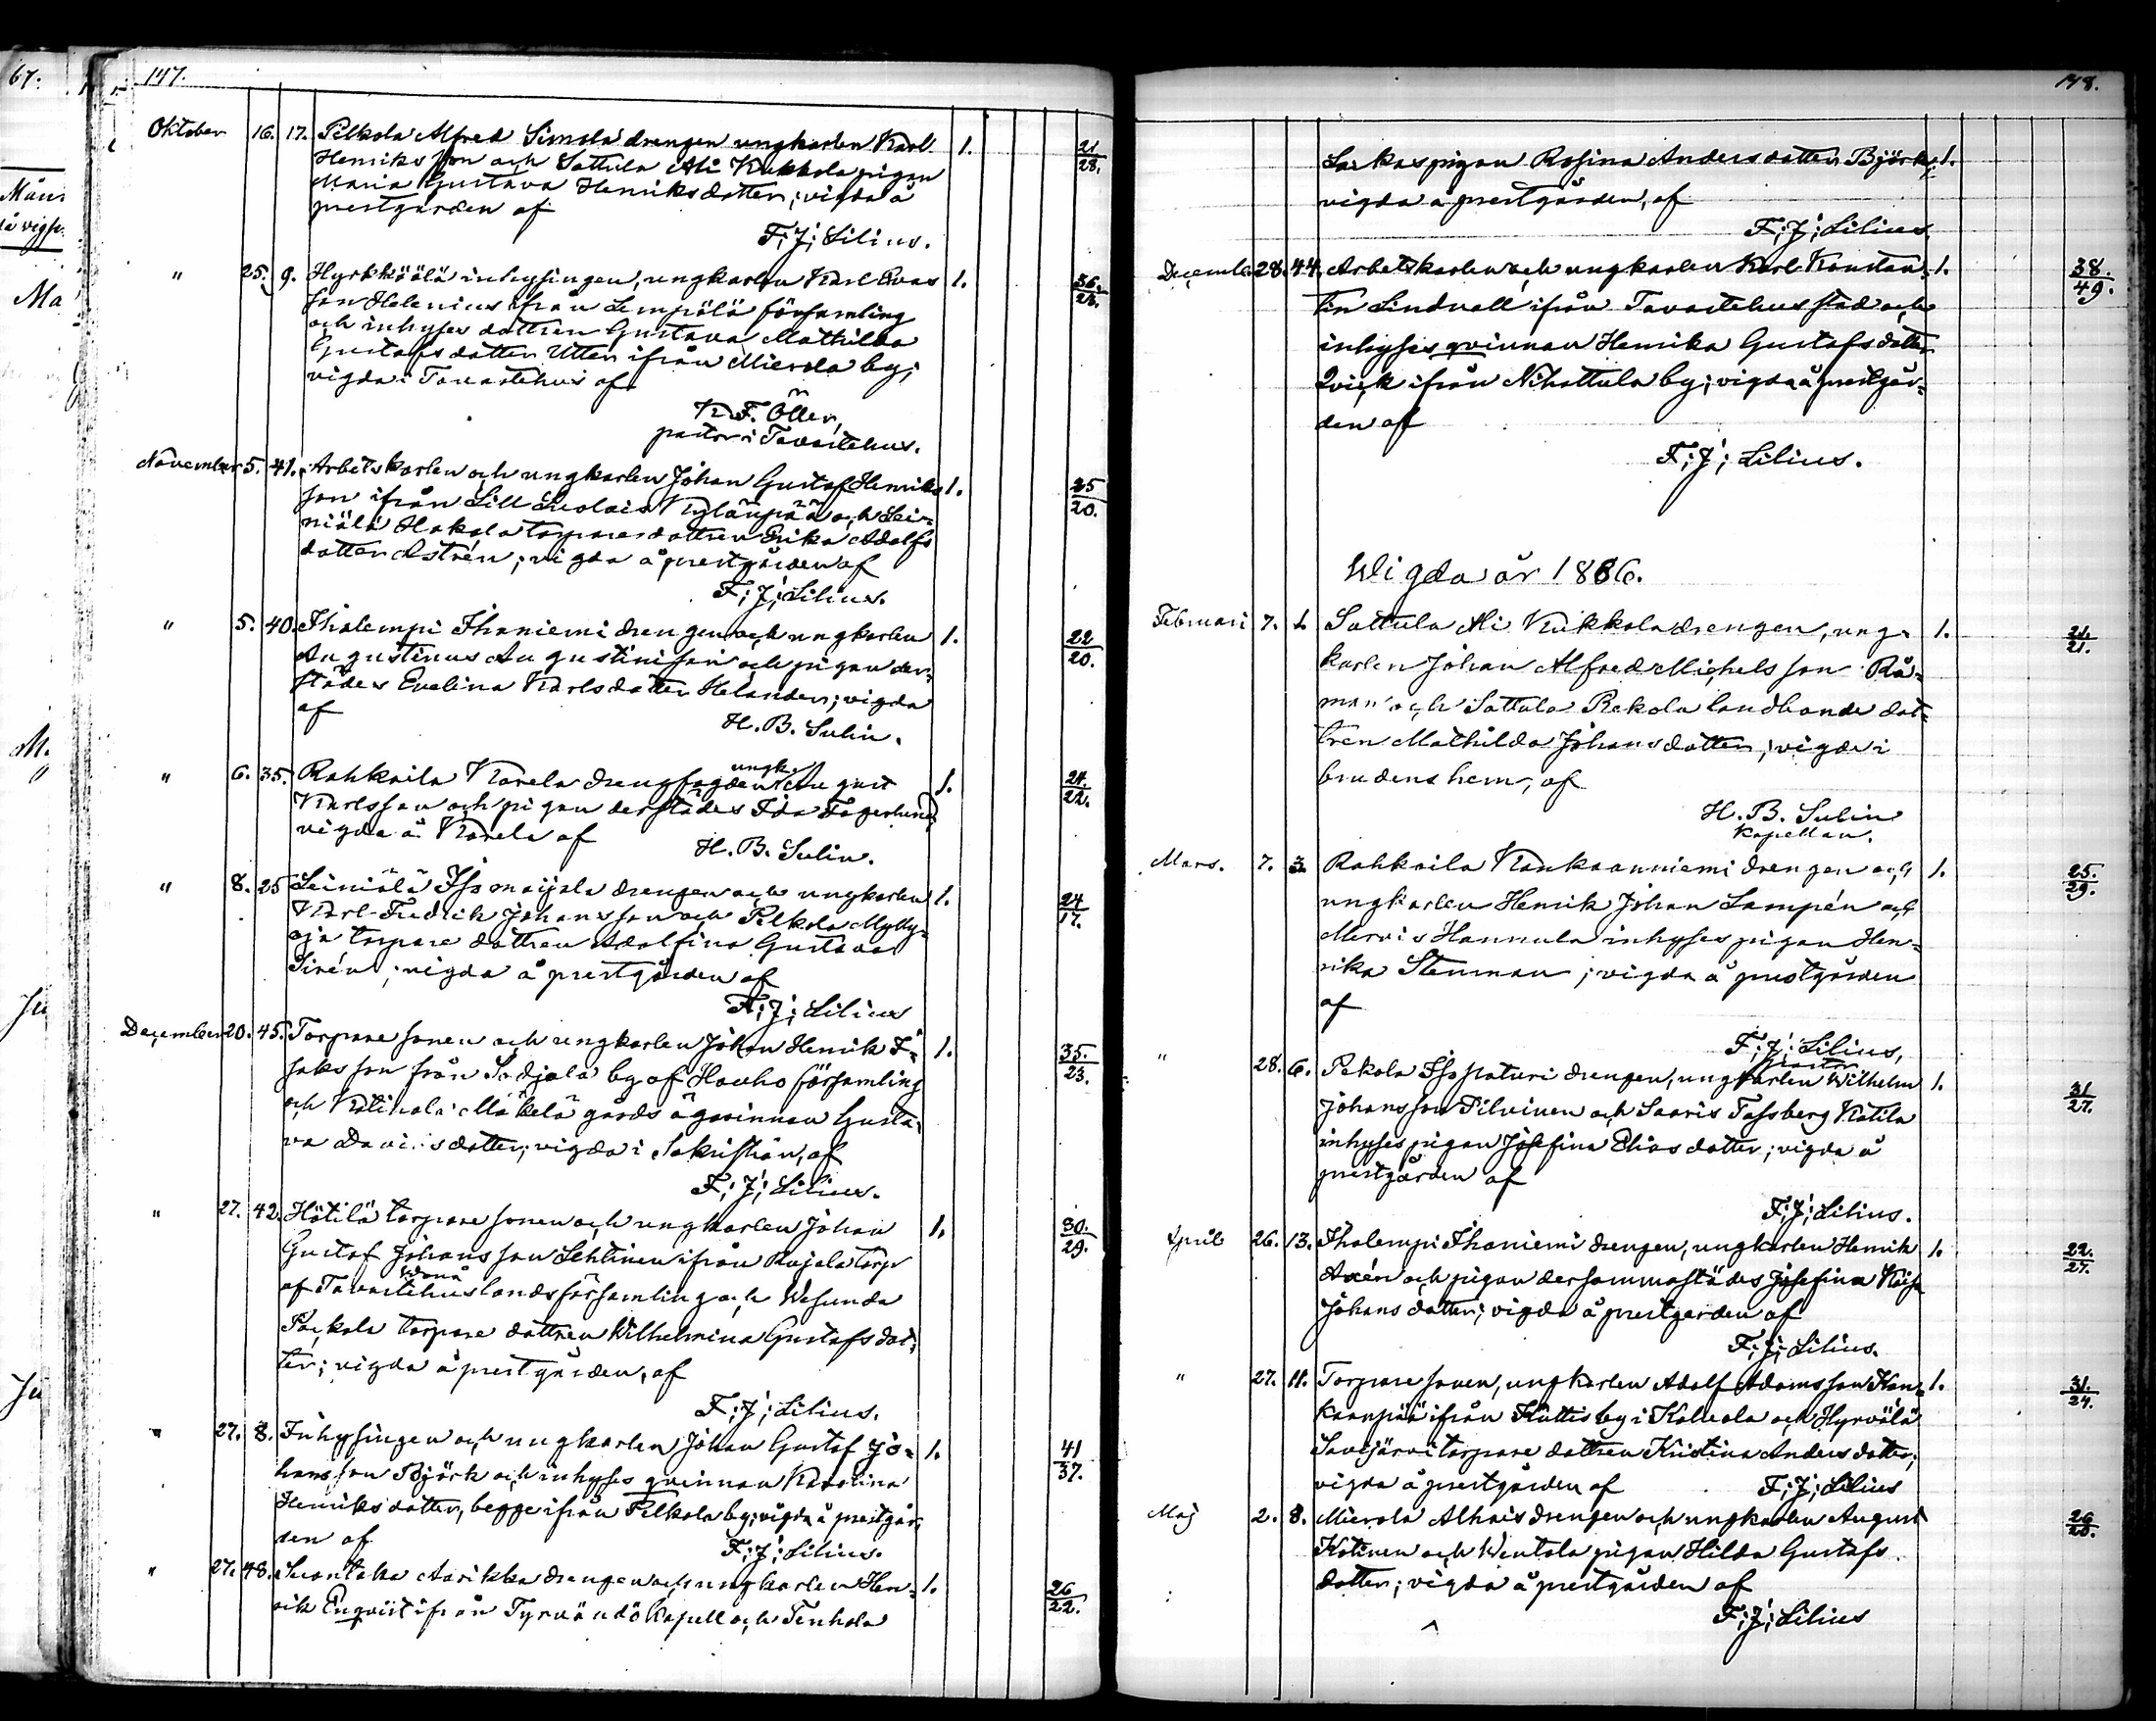 67.
147.
Oktober 16. 17. Pelkola Alfred Simola drengen ungkarlen Karl 1. 21/28.
Henriksson och Sattula Ali Kukkola pigan
Maria Gustava Henriksdotter; vigda å
prestgården af
F; J; Lilius.
" 25. 9. Hyrkkäälä inhysingen, ungkarlen Karl Evas 1. 36./28.
son Helenius ifrån Lempälä församling
och inhyses dottren Gustava Mathilda
Gustafsdotter Utter ifrån Mierola by;
vigda i Tavastehus af
K. F. Öller,
pastor i Tavastehus.
November 5. 41. Arbetskarlen och ungkarlen Johan Gustaf Henriks 1. 25/20.
son ifrån Lill Luolais Kylänpää och Lei-
niälä Hakala torpare dottren Erika Adolfs
dotter Astrén; vigda å prestgården af
F; J; Lilius.
" 5. 40. Ihalempi Ihaniemi drengen och ungkarlen 1. 22/20.
Augustinus Augustinison och pigan der-
städes Evelina Karlsdotter Helander; vigda
af
H. B. Sulin.
" 6. 35. Rahkoila Karela drengfogden ungk. August 1. 24./22.
Karlsson och pigan derstädes Ida Fagerlund;
vigda å Karela af
H. B. Sulin.
" 8. 25 Leiniälä Isomaijala drengen och ungkarlen 1. 24/17.
Karl Fredrich Johansson och Pelkola Mylly-
oja torpare dottren Adolfina Gustava
Sirén; vigda å prestgården af
F; J; Lilius
December 20. 45. Torpare sonen och ungkarlen Johan Henrik I- 1. 35./23.
saksson från Sadjala by af Hauho församling
och Katinala Mäkelä gårds ägarinnan Gusta-
va Davidsdotter; vigda i Sakristian, af
F; J; Lilius.
" 27. 42. Hätilä torpare sonen och ungkarlen Johan 1. 30./29.
Gustaf Johansson Lehtinen ifrån Rajala torp
af Tavastehus landsförsamling och Wesunda
Packola torpare dottren Wilhelmina Gustafsdot-
ter; vigda å prestgården, af
F; J; Lilius.
" 27. 8. Inhysingen och ungkarlen Johan Gustaf Jo- 1. 41/37.
hansson Björk och inhyses qvinnan Karolina
Henriksdotter, begge ifrån Pelkola by; vigda å prestgår-
den af
F; J; Lilius.
" 27. 48. Luontaka Aarikka drengen och ungkarlen Hen- 1. 26/22.
rik Enqvist ifrån Tyrvändö kapell och Tenhola
148.
Laskas pigan Rosina Andersdotter Björk; 1.
vigda å prestgården, af
F; J; Lilius.
December 28. 44. Arbetskarlen och ungkarlen Karl Konstan- 1. 38./49.
tin Lindvall ifrån Tavastehus stad och
inhyses qvinnan Henrika Gustafsdotter
Qvick ifrån Nihattula by; vigda å prestgår-
den af
F; J; Lilius.
Wigda år 1886.
Februari 7. 1. Sattula Ali Kukkola drengen, ung- 1. 21./21.
karlen Johan Alfred Michelsson Rå-
man och Sattula Rekola landbonde dot-
tren Mathilda Johansdotter; vigda i
brudens hem, af
H. B. Sulin
kapellan.
Mars. 7. 3. Rahkoila Kankaanniemi drengen och 1. 25./29.
ungkarlen Henrik Johan Lampén och
Mervis Hannula inhyses pigan Hen-
rika Stenman; vigda å prestgården
af
F; J; Lilius,
pastor
" 28. 6. Pekola Isopaturi drengen, ungkarlen Wilhelm 1. 31/27.
Johansson Pilvinen och Saaris Fassberg Katila
inhyses pigan Josefina Eliasdotter; vigda å
prestgården af
F; J; Lilius.
April 26. 13. Ihalempi Ihaniemi drengen, ungkarlen Henrik 1. 22./27.
Axén och pigan dersammastädes Josefina Kaisa
Johansdotter; vigda å prestgården af
F; J; Lilius.
" 27. 11. Torpare sonen, ungkarlen Adolf Adamsson Kan- 1. 31./24.
kaanpää ifrån Kuttis by i Kalvola och Hyrvälä
Savijärvi torpare dottren Kristina Andersdotter;
vigda å prestgården af F; J; Lilius
Maj 2. 8. Mierola Alhais drengen och ungkarlen August 1. 26/28.
Kotinen och Wentola pigan Hilda Gustafs
dotter; vigda å prestgården af
F; J; Lilius